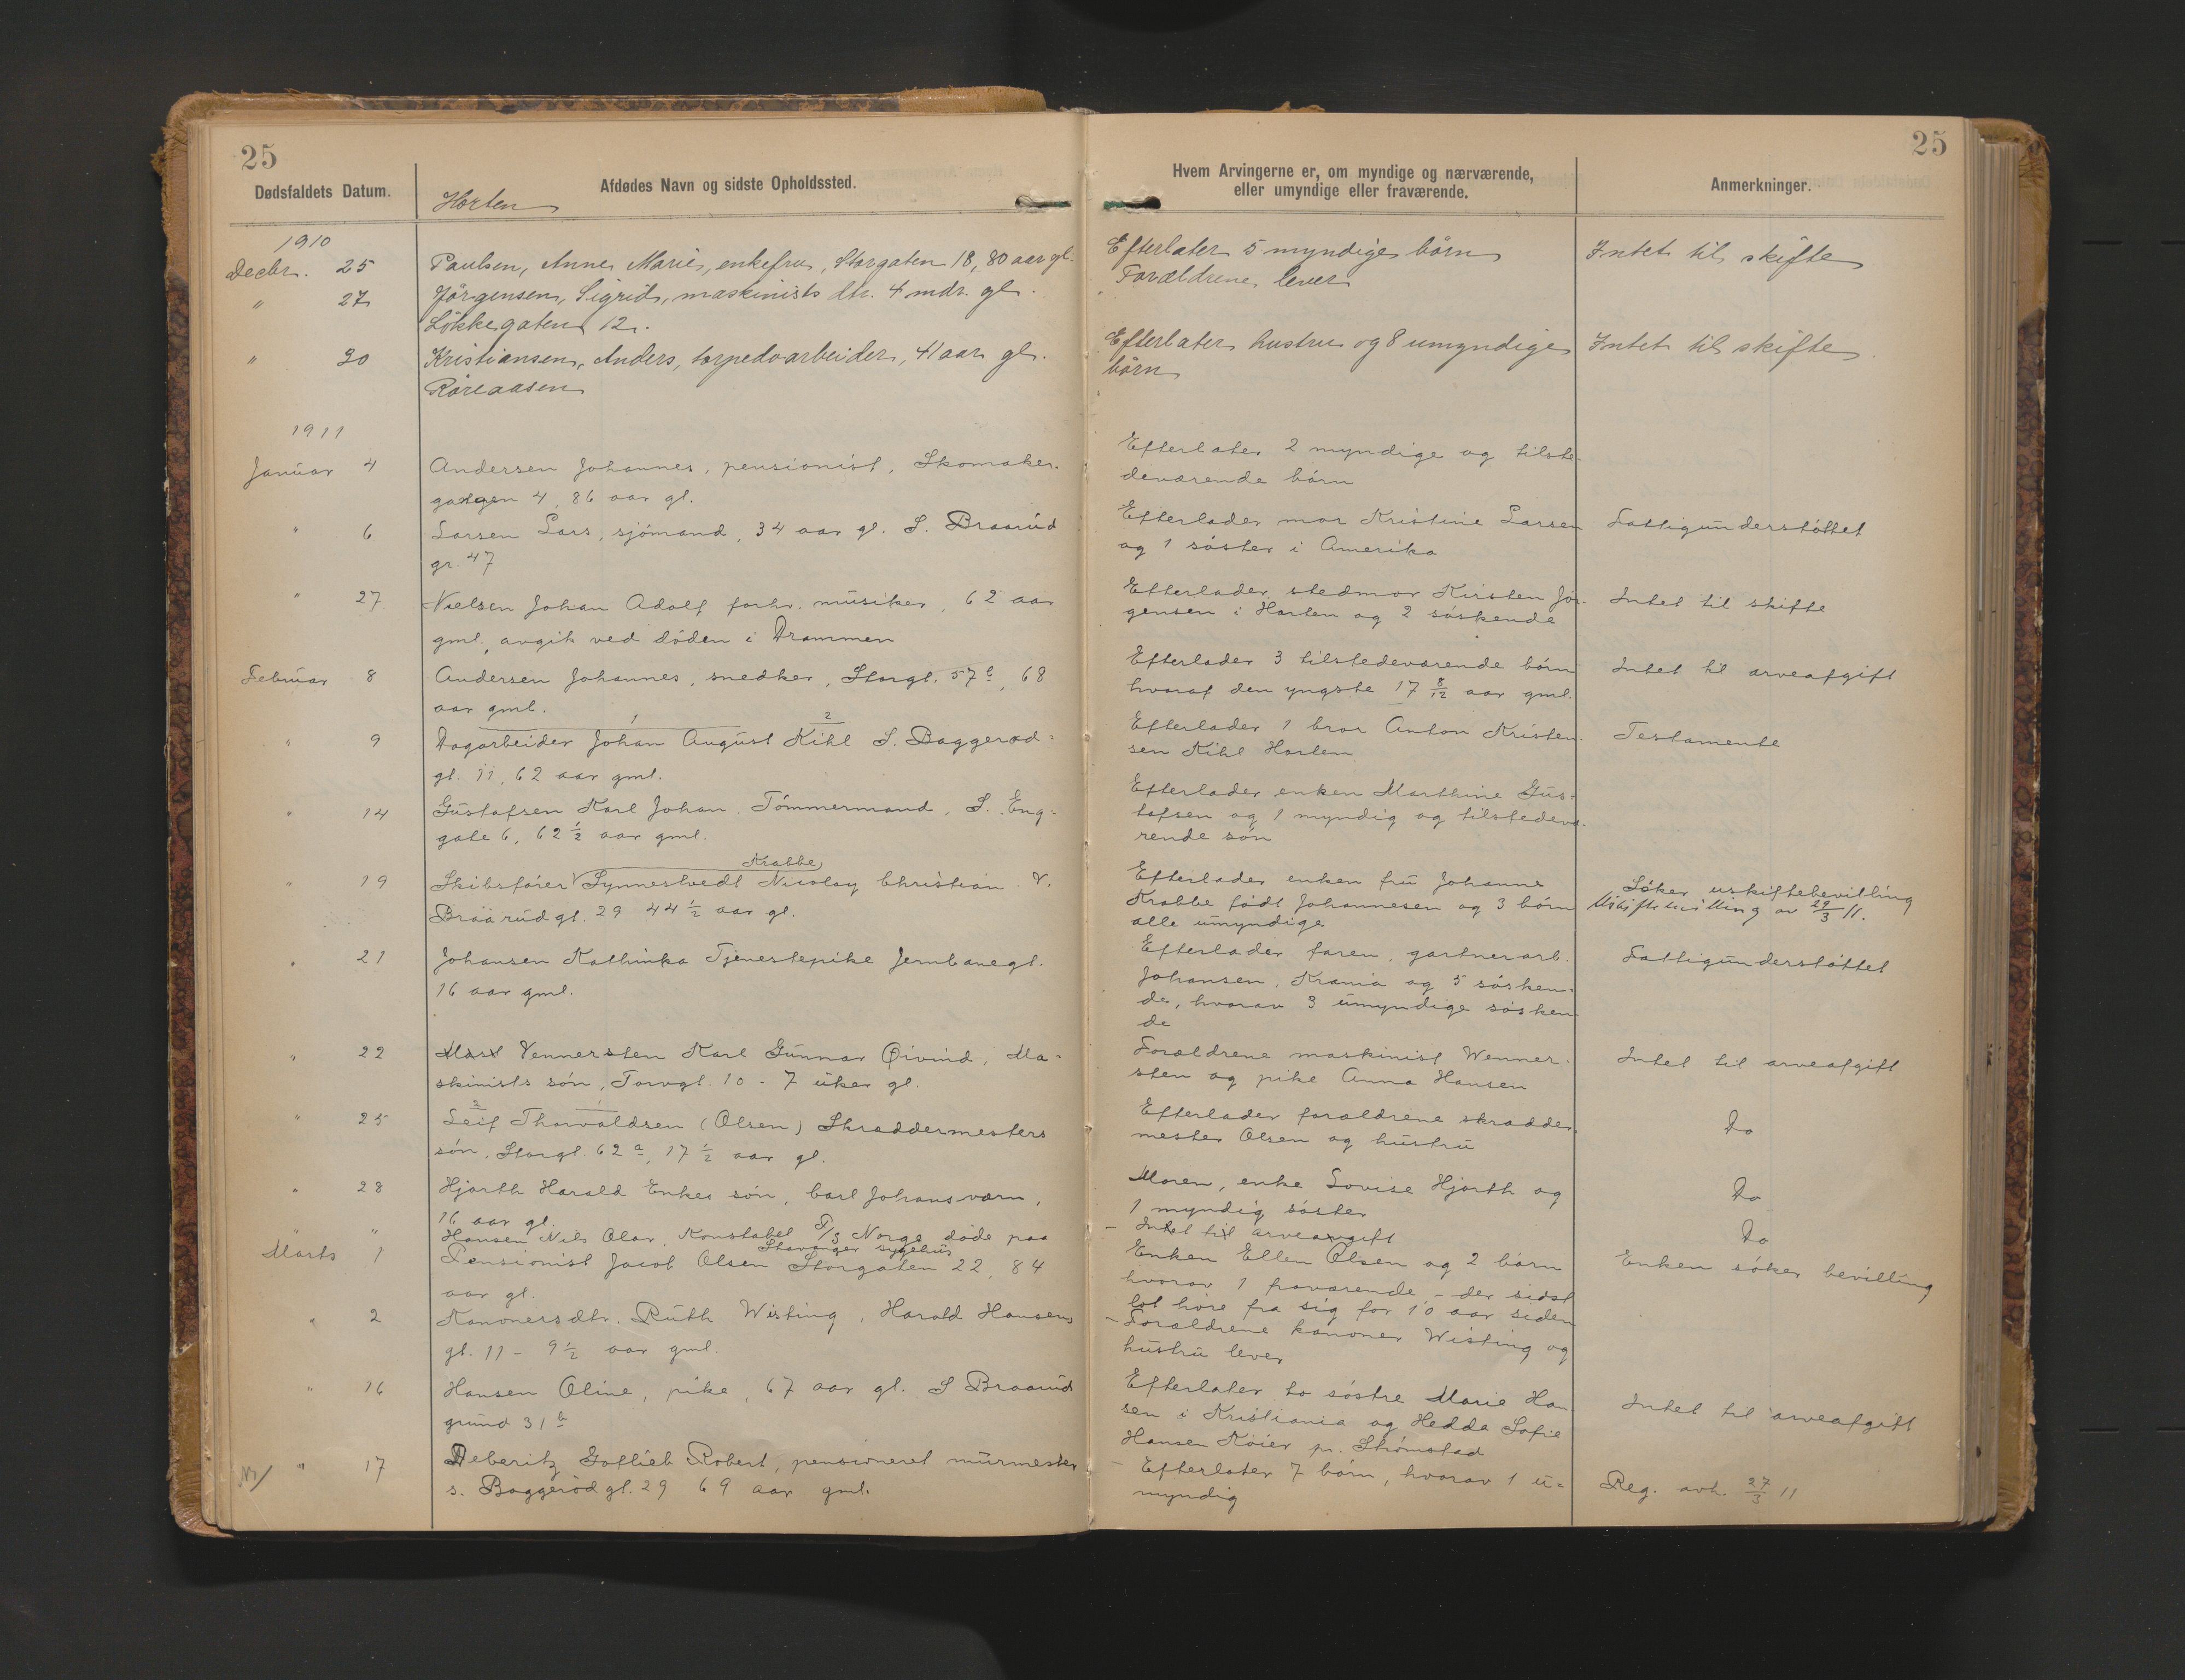 25
25
Dødsfaldets Datum.
Afdødes Navn og sidste Opholdssted.
Hvem Arvingerne er, om myndige og nærværende,
eller umyndige eller fraværende.
Anmerkninger.
Horten
1910
Decbr. 25 Paulsen, Anne Marie, enkefru, Storgaten 18, 80 aar gl. Efterlater 5 myndige börn Intet til skifte
" 27 Jörgensen, Sigrid, maskinists dtr. 4 mdr. gl. Forældrene lever
Lökkegaten 12.
" 30 Kristiansen, Anders, torpedoarbeider, 41 aar gl. Efterlater hustru og 8 umyndige Intet til skifte
Röreaasen börn
1911
Januar 4 Andersen Johannes, pensionist, Skomaker- Efterlater 2 myndige og tilste-
gangen 4, 86 aar gl. deværende börn
" 6 Larsen Lars, sjömand, 34 aar gl. S. Braarud Efterlader mor Kristine Larsen Fattigunderstöttet
gr. 47 og 1 söster i Amerika
" 27 Nielsen Johan Adolf forhv. musiker, 62 aar Efterlader stedmor Kirsten Jör- Intet til skifte
gml., avgik ved döden i Drammen gensen i Horten og 2 söskende
Februar 8 Andersen Johannes, snedker, Storgt. 57 c, 68 Efterlader 3 tilstedeværende börn Intet til arveafgift
aar gml. hvoraf den yngste 17 8/12 aar gml.
1 2
" 9 Dagarbeider Johan August Kihl S. Baggerød= Efterlader 1 bror Anton Kristen- Testamente
gt. 11, 62 aar gml. sen Kihl Horten
" 14 Gustafsen Karl Johan, Tömmermand, S. Eng- Efterlader enken Marthine Gus=
gate 6, 62 1/2 aar gml. tafsen og 1 myndig og tilstedevæ-
rende sön
Krabbe
" 19 Skibsförer Synnestvedt Nicolay Christian V. Efterlader enken fru Johanne Söker uskiftebevilling
Braarudgt. 29 44 1/2 aar gl. Krabbe födt Johannesen og 3 börn Uskiftebevilling av 29/3 11.
alle umyndige
" 21 Johansen Kathinka Tjenestepike Jernbanegt. Efterlader faren, gartnerarb. Fattigunderstöttet
16 aar gml. Johansen, Krania og 5 sösken=
de, hvorav 3 umyndige sösken
de
" 22 Vennersten Karl Gunnar Øivind, Ma= Forældrene maskinist Wenner- Intet til arveafgift
skinists sön, Torvgt. 10 - 7 uker gl. sten og pike Anna Hansen
2 1
" 25 Leif Thorvaldsen (Olsen) Skræddermesters Efterlader forældrene skrædder- Do
sön, Storgt. 62 a, 17 1/2 aar gl. mester Olsen og hustru
" 28 Hjorth Harald Enkes sön, Carl Johansværn, Moren, enke Lovise Hjorth og Do
16 aar gl. 1 myndig söster
" " Hansen Nils Olav, Konstabel P/S Norge döde paa - Intet til arveavgift Do
Stavanger sygehus
Marts 1 Pensionist Jacob Olsen Storgaten 22, 84 Enken Ellen Olsen og 2 börn Enken söker bevilling
aar gl. hvorav 1 fraværende - der sidst
lot höre fra sig for 10 aar siden
" 2 Kanonersdtr. Ruth Wisting, Harald Hansens - Forældrene kanoner Wisting og
gt. 11 - 9 1/2 aar gml. hustru lever
" 16 Hansen Oline, pike, 67 aar gl. S Braarud Efterlater to söstre Marie Han Intet til arveafgift
grund 31 b sen i Kristiania og Hedda Sofie
Hansen Köier pr. Strömstad
" 17 Deberitz Gotlieb Robert, pensioneret murmester - Efterlater 7 börn, hvorav 1 u- Reg. avh. 27/3 11
s. Baggerødgt. 29 69 aar gml. myndig